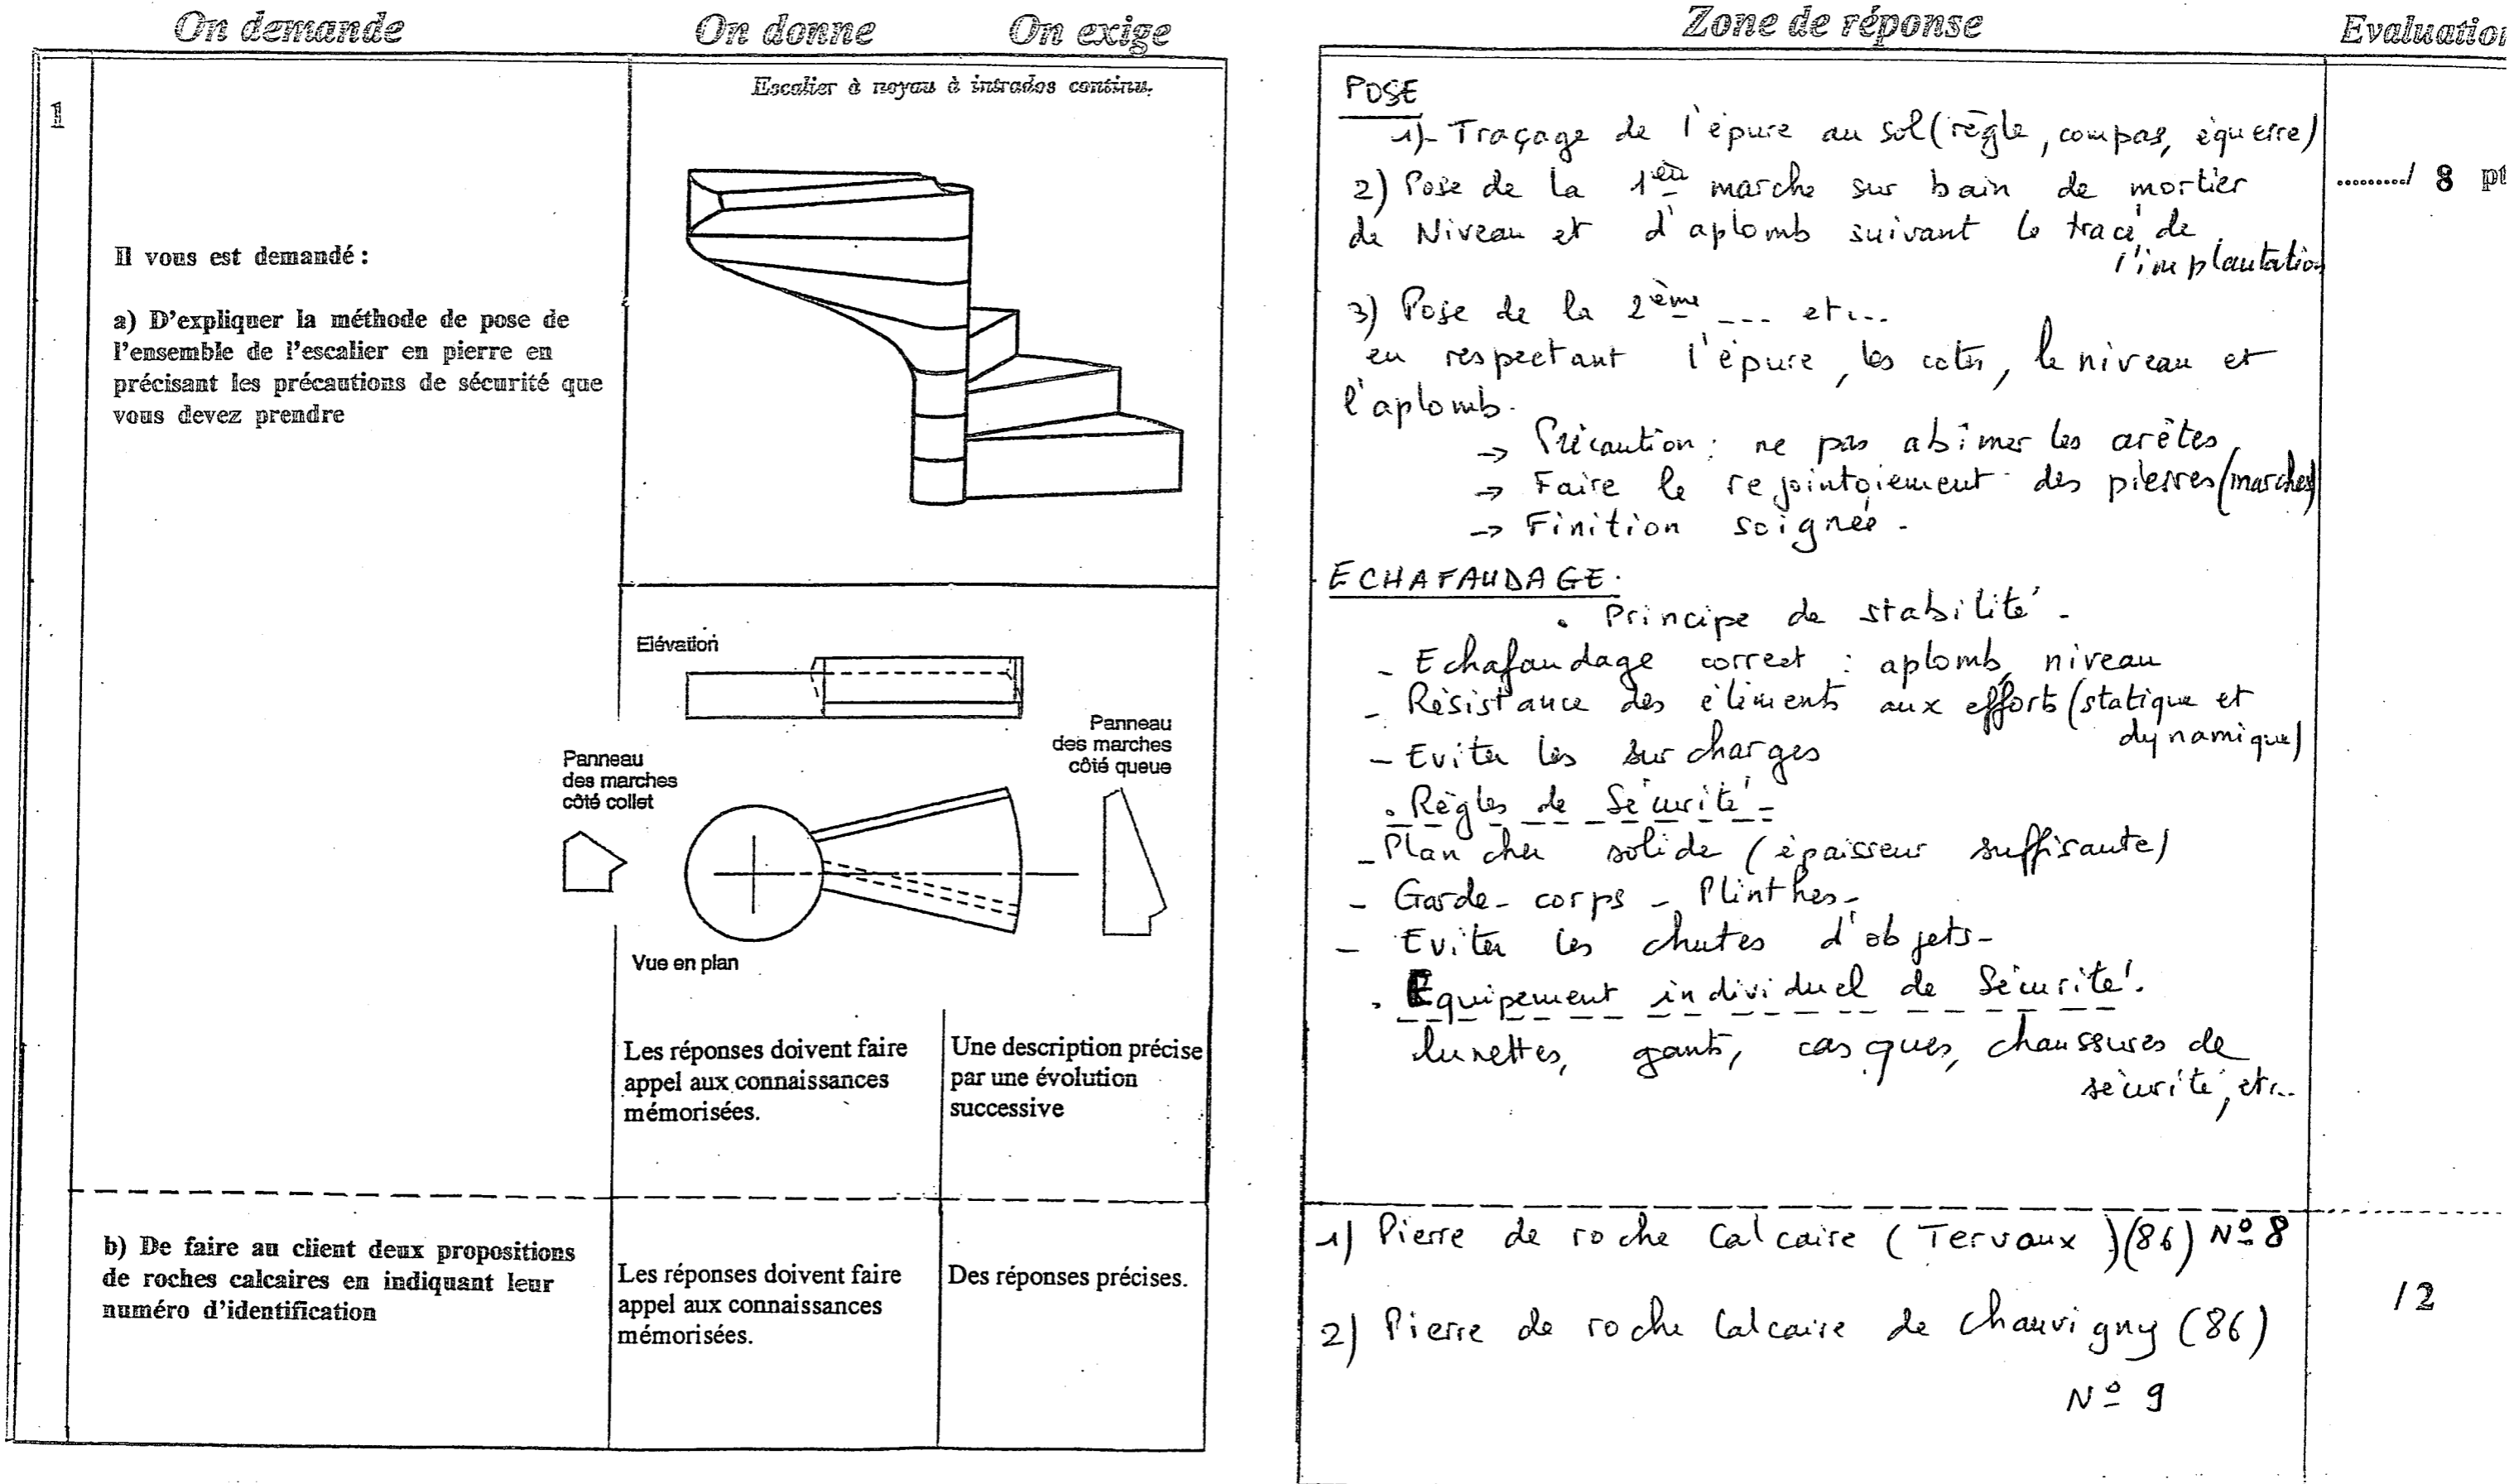 On demande
On donne
On exige
Zone de réponse
Evaluation
1
Il vous est demandé :
a) D'expliquer la méthode de pose de
l'ensemble de l'escalier en pierre en
précisant les précautions de sécurité que
vous devez prendre
Escalier à noyau à intrados continu.
Elévation
Panneau
des marches
côté queue
Panneau
des marches
côté collet
Vue en plan
Les réponses doivent faire
appel aux connaissances
mémorisées.
Une description précise
par une évolution
successive
b) De faire au client deux propositions
de roches calcaires en indiquant leur
numéro d'identification
Les réponses doivent faire
appel aux connaissances
mémorisées.
Des réponses précises.
POSE
1)- Traçage de l'épure au sol (règle, compas, équerre)
2) Pose de la 1ère marche sur bain de mortier
de Niveau et d'aplomb suivant le tracé de
l'implantation
3) Pose de la 2ème --- et...
en respectant l'épure, les cotes, le niveau et
l'aplomb.
→ Précaution : ne pas abîmer les arêtes
→ Faire le rejointoiement des pierres (marches)
→ Finition soignée -
ECHAFAUDAGE.
. Principe de stabilité -
- Echafaudage correct : aplomb, niveau
- Résistance des éléments aux effort (statique et
dynamique)
- Eviter les surcharges
. Règles de Sécurité -
- Plancher solide (épaisseur suffisante)
- Garde-corps - Plinthes -
- Eviter les chutes d'objets -
. Equipement individuel de Sécurité.
lunettes, gants, casques, chaussures de
sécurité, etc..
......../ 8 pt
1) Pierre de roche Calcaire (Tervaux) (86) Nº 8
2) Pierre de roche Calcaire de Chauvigny (86)
Nº 9
/ 2